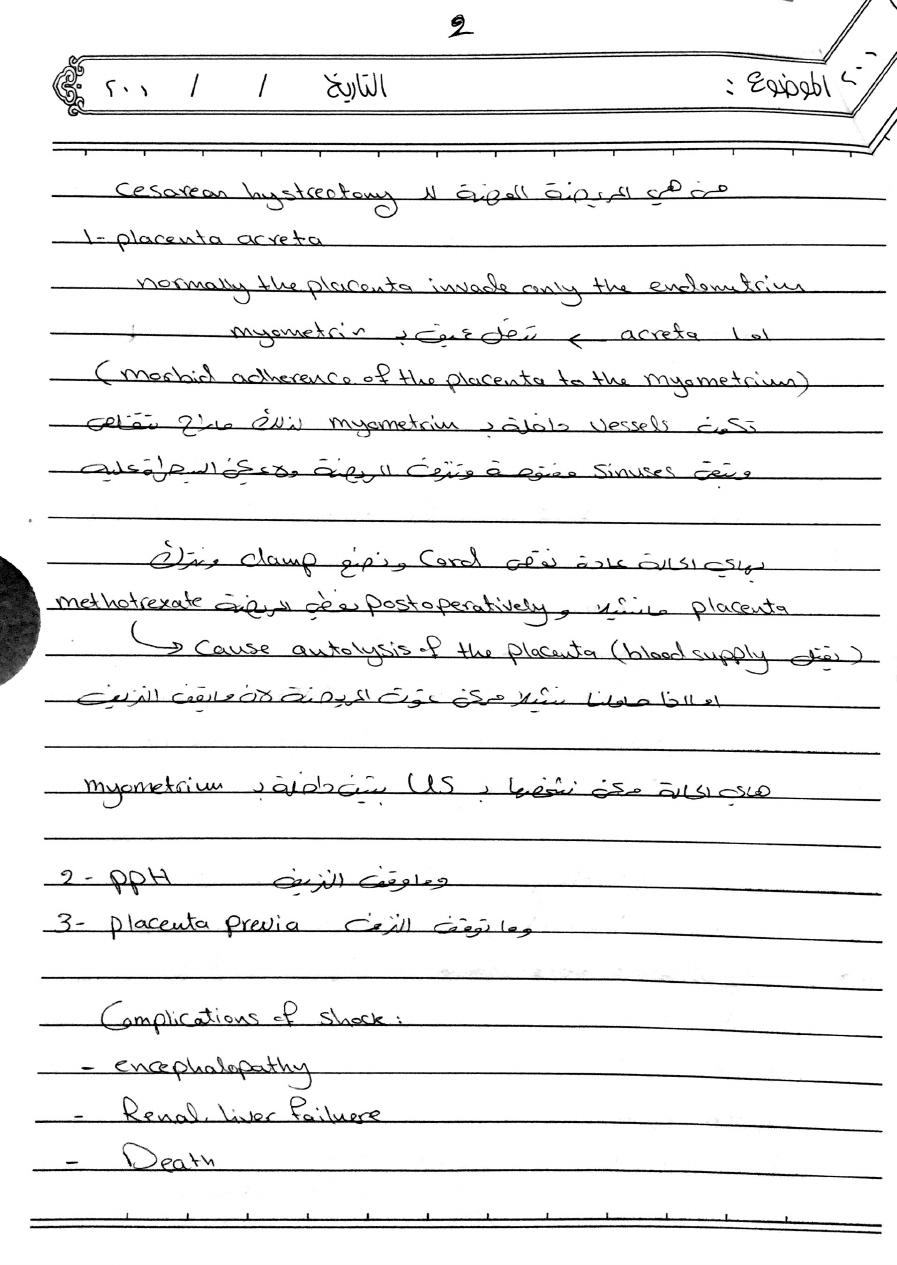 2
الموضوع : التاريخ / / ٢٠٠١
من هي المريضة المهيئة لـ Cesarean hystrectomy
1- placenta acreta
normally the placenta invade only the endometrium
اما acreta ← تدخل عميق بـ myometrium
(morbid adherence of the placenta to the myometrium)
تكون vessels داخلة بـ myometrium لذلك ماراح تتقلص
وتبقى sinuses مفتوحة وتنزف المريضة ولا يمكن السيطرة عليه
بهاي الحالة عادة نقص Cord ونضع clamp ونترك
placenta مانشيلا و postoperatively نعطي المريضة methotrexate
↳ cause autolysis of the placenta (blood supply نقتل)
اما اذا حاولنا نشيلا ممكن تموت المريضة لان مايوقف النزيف
هاي الحالة ممكن نشخصها بـ US يتبين داخلة بـ myometrium
2- PPH وماوقف النزيف
3- placenta previa وما توقف النزف
Complications of shock:
- encephalopathy
- Renal, liver failuere
- Death